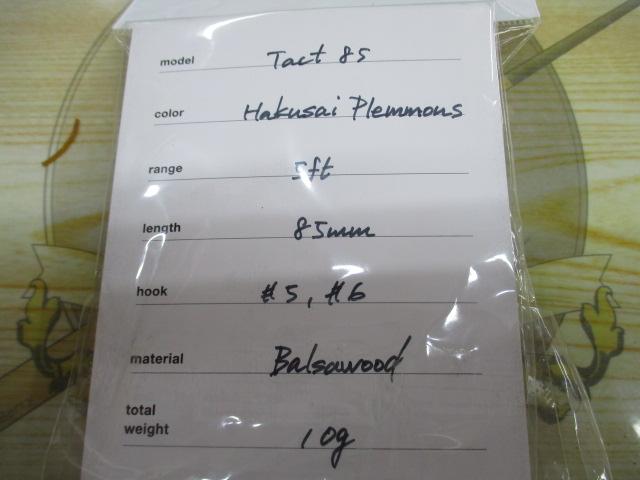 model Tact 85
color Hakusai Plemmons
range 5ft
length 85mm
hook #5, #6
material Balsawood
total
weight 10g